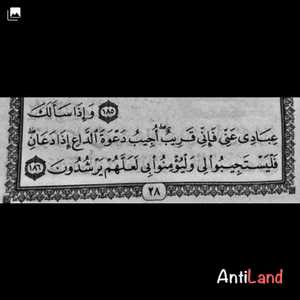 ﴿١٨٥﴾ وَإِذَا سَأَلَكَ
عِبَادِى عَنِّى فَإِنِّى قَرِيبٌ ۖ أُجِيبُ دَعْوَةَ ٱلدَّاعِ إِذَا دَعَانِ ۖ
فَلْيَسْتَجِيبُوا۟ لِى وَلْيُؤْمِنُوا۟ بِى لَعَلَّهُمْ يَرْشُدُونَ ﴿١٨٦﴾
٢٨
AntiLand